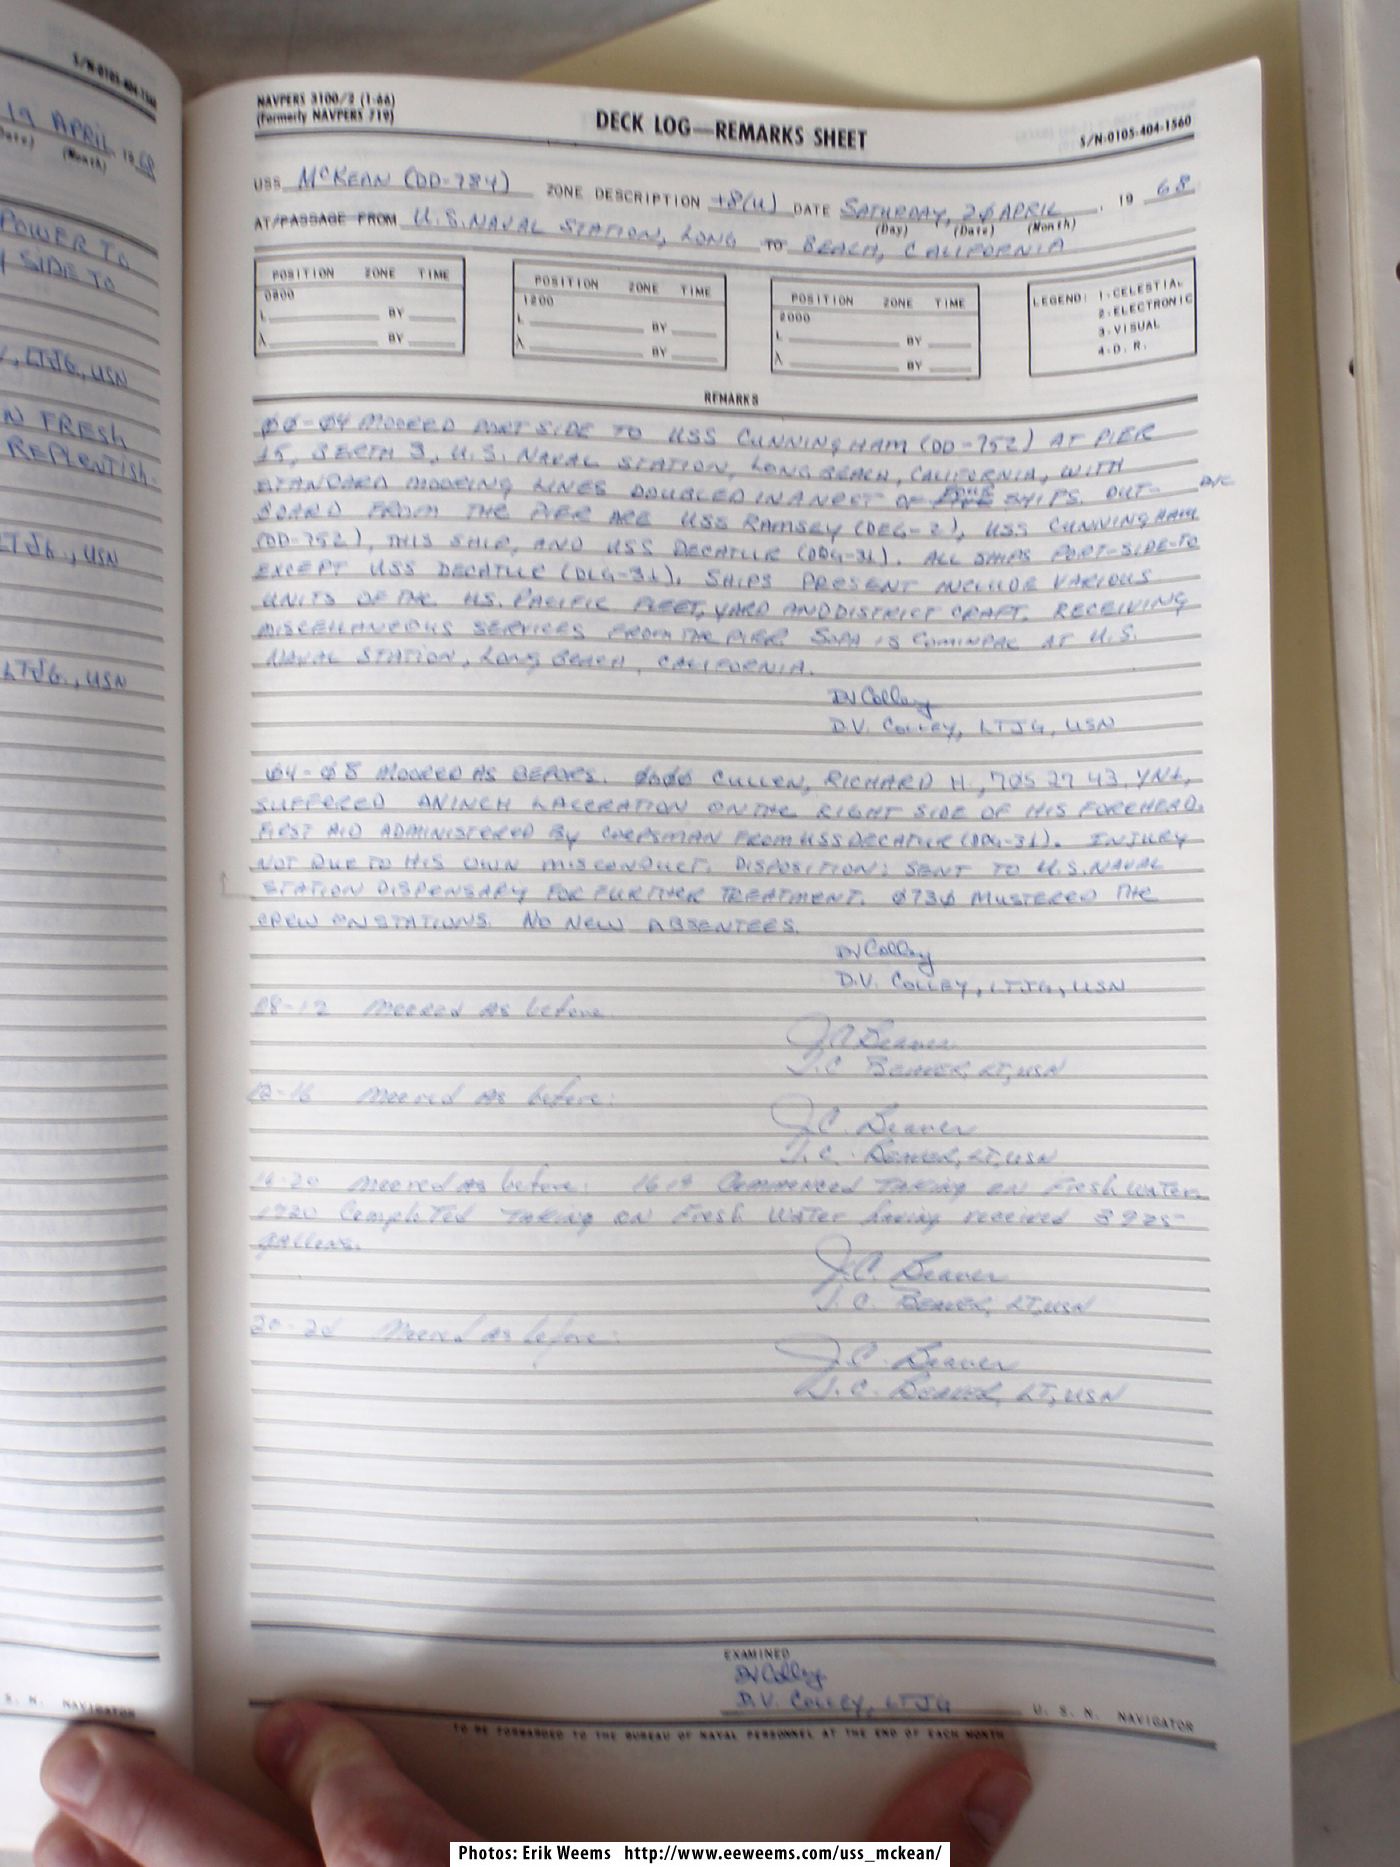 S/N-0105-404-1560
19 APRIL 19 68
(Date) (Month)
POWER TO
SIDE TO
, LTJG., USN
N FRESH
REPLENTISH-
LTJG., USN
LTJG., USN
S. N. NAVIGATOR
NAVPERS 3100/2 (1-66)
(Formerly NAVPERS 719)
DECK LOG—REMARKS SHEET
S/N-0105-404-1560
USS McKEAN (DD-784) ZONE DESCRIPTION +8(U) DATE SATURDAY, 2Ø APRIL, 19 68
(Day) (Date) (Month)
AT/PASSAGE FROM U.S. NAVAL STATION, LONG TO BEACH, CALIFORNIA
POSITION ZONE TIME
0800
L BY
λ BY
POSITION ZONE TIME
1200
L BY
λ BY
POSITION ZONE TIME
2000
L BY
λ BY
LEGEND: 1-CELESTIAL
2-ELECTRONIC
3-VISUAL
4-D. R.
REMARKS
ØØ-Ø4 MOORED PORT SIDE TO USS CUNNINGHAM (DD-752) AT PIER
15, BERTH 3, U.S. NAVAL STATION, LONG BEACH, CALIFORNIA, WITH
STANDARD MOORING LINES DOUBLED IN A NEST OF SHIPS. OUT-
BOARD FROM THE PIER ARE USS RAMSEY (DEG-2), USS CUNNINGHAM
(DD-752), THIS SHIP, AND USS DECATUR (DDG-31). ALL SHIPS PORT-SIDE-TO
EXCEPT USS DECATUR (DLG-31). SHIPS PRESENT INCLUDE VARIOUS
UNITS OF THE U.S. PACIFIC FLEET, YARD AND DISTRICT CRAFT. RECEIVING
MISCELLANEOUS SERVICES FROM THE PIER. SOPA IS COMINPAC AT U.S.
NAVAL STATION, LONG BEACH, CALIFORNIA.
DV Colley
D.V. COLLEY, LTJG, USN
Ø4-Ø8 MOORED AS BEFORE. CULLEN, RICHARD H., 705 27 43, YN1,
SUFFERED AN INCH LACERATION ON THE RIGHT SIDE OF HIS FOREHEAD.
FIRST AID ADMINISTERED BY CORPSMAN FROM USS DECATUR (DDG-31). INJURY
NOT DUE TO HIS OWN MISCONDUCT. DISPOSITION: SENT TO U.S. NAVAL
STATION DISPENSARY FOR FURTHER TREATMENT. Ø73Ø MUSTERED THE
CREW ON STATIONS. NO NEW ABSENTEES.
DV Colley
D.V. COLLEY, LTJG, USN
08-12 Moored as before.
J.C. Beaver
J.C. BEAVER, LT, USN
12-16 Moored as before:
J.C. Beaver
J.C. BEAVER, LT, USN
16-20 Moored as before: Commenced taking on Fresh Water
1720 Completed taking on Fresh Water having received 3925
gallons.
J.C. Beaver
J.C. BEAVER, LT, USN
20-24 Moored as before:
J.C. Beaver
J.C. BEAVER, LT, USN
EXAMINED
DV Colley
D.V. COLLEY, LTJG U. S. N. NAVIGATOR
TO BE FORWARDED TO THE BUREAU OF NAVAL PERSONNEL AT THE END OF EACH MONTH
Photos: Erik Weems http://www.eeweems.com/uss_mckean/